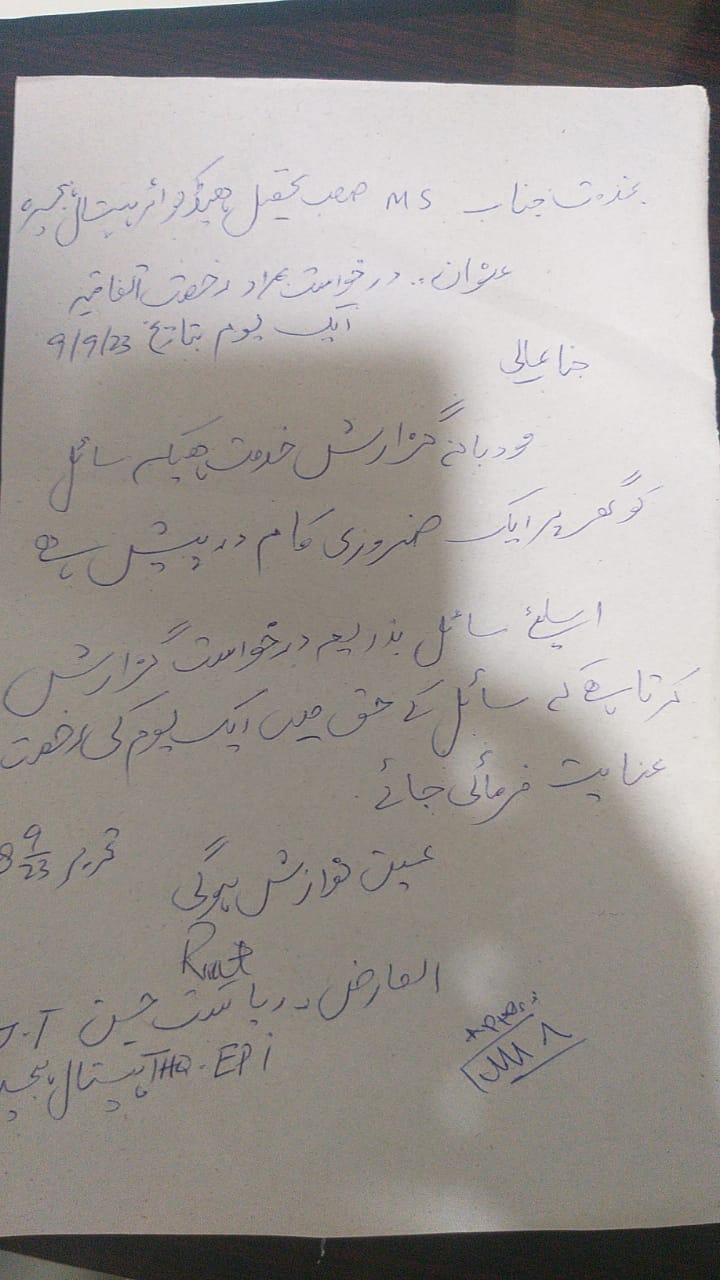 بخدمت جناب MS صاحب تحصیل ہیڈکوائر ہسپتال ہجیرہ
عنوان:۔ درخواست بمراد رخصت اتفاقیہ
ایک یوم بتاریخ 9/9/23
جناب عالی
مودبانہ گزارش خدمت ہیکہ سائل
کو گھر پر ایک ضروری کام درپیش ہے
اسلئے سائل بذریعہ درخواست گزارش
کرتا ہے کہ سائل کے حق میں ایک یوم کی رخصت
عنایت فرمائی جائے۔
عین نوازش ہوگی
تحریر 8/9/23
العارض:۔ ریاست حسین J.T
THQ ہسپتال ہجیرہ EPI